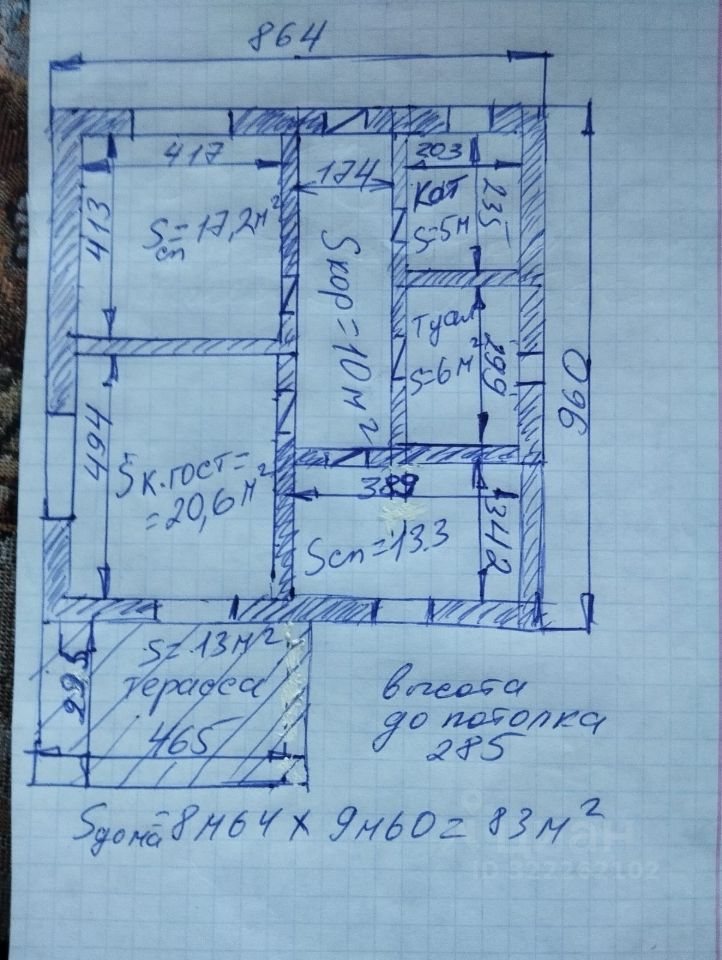 864
417
413
S сп = 17,2м²
174
Sкор = 10м²
203
Кот
S=5м
235
Туал
S=6м²
299
960
494
S к.гост =
= 20,6м²
389
Sсп = 13.3
342
S = 13м²
терасса
295
465
высота
до потолка
285
Sдома = 8м64 х 9м60 = 83м²
ID 322262102